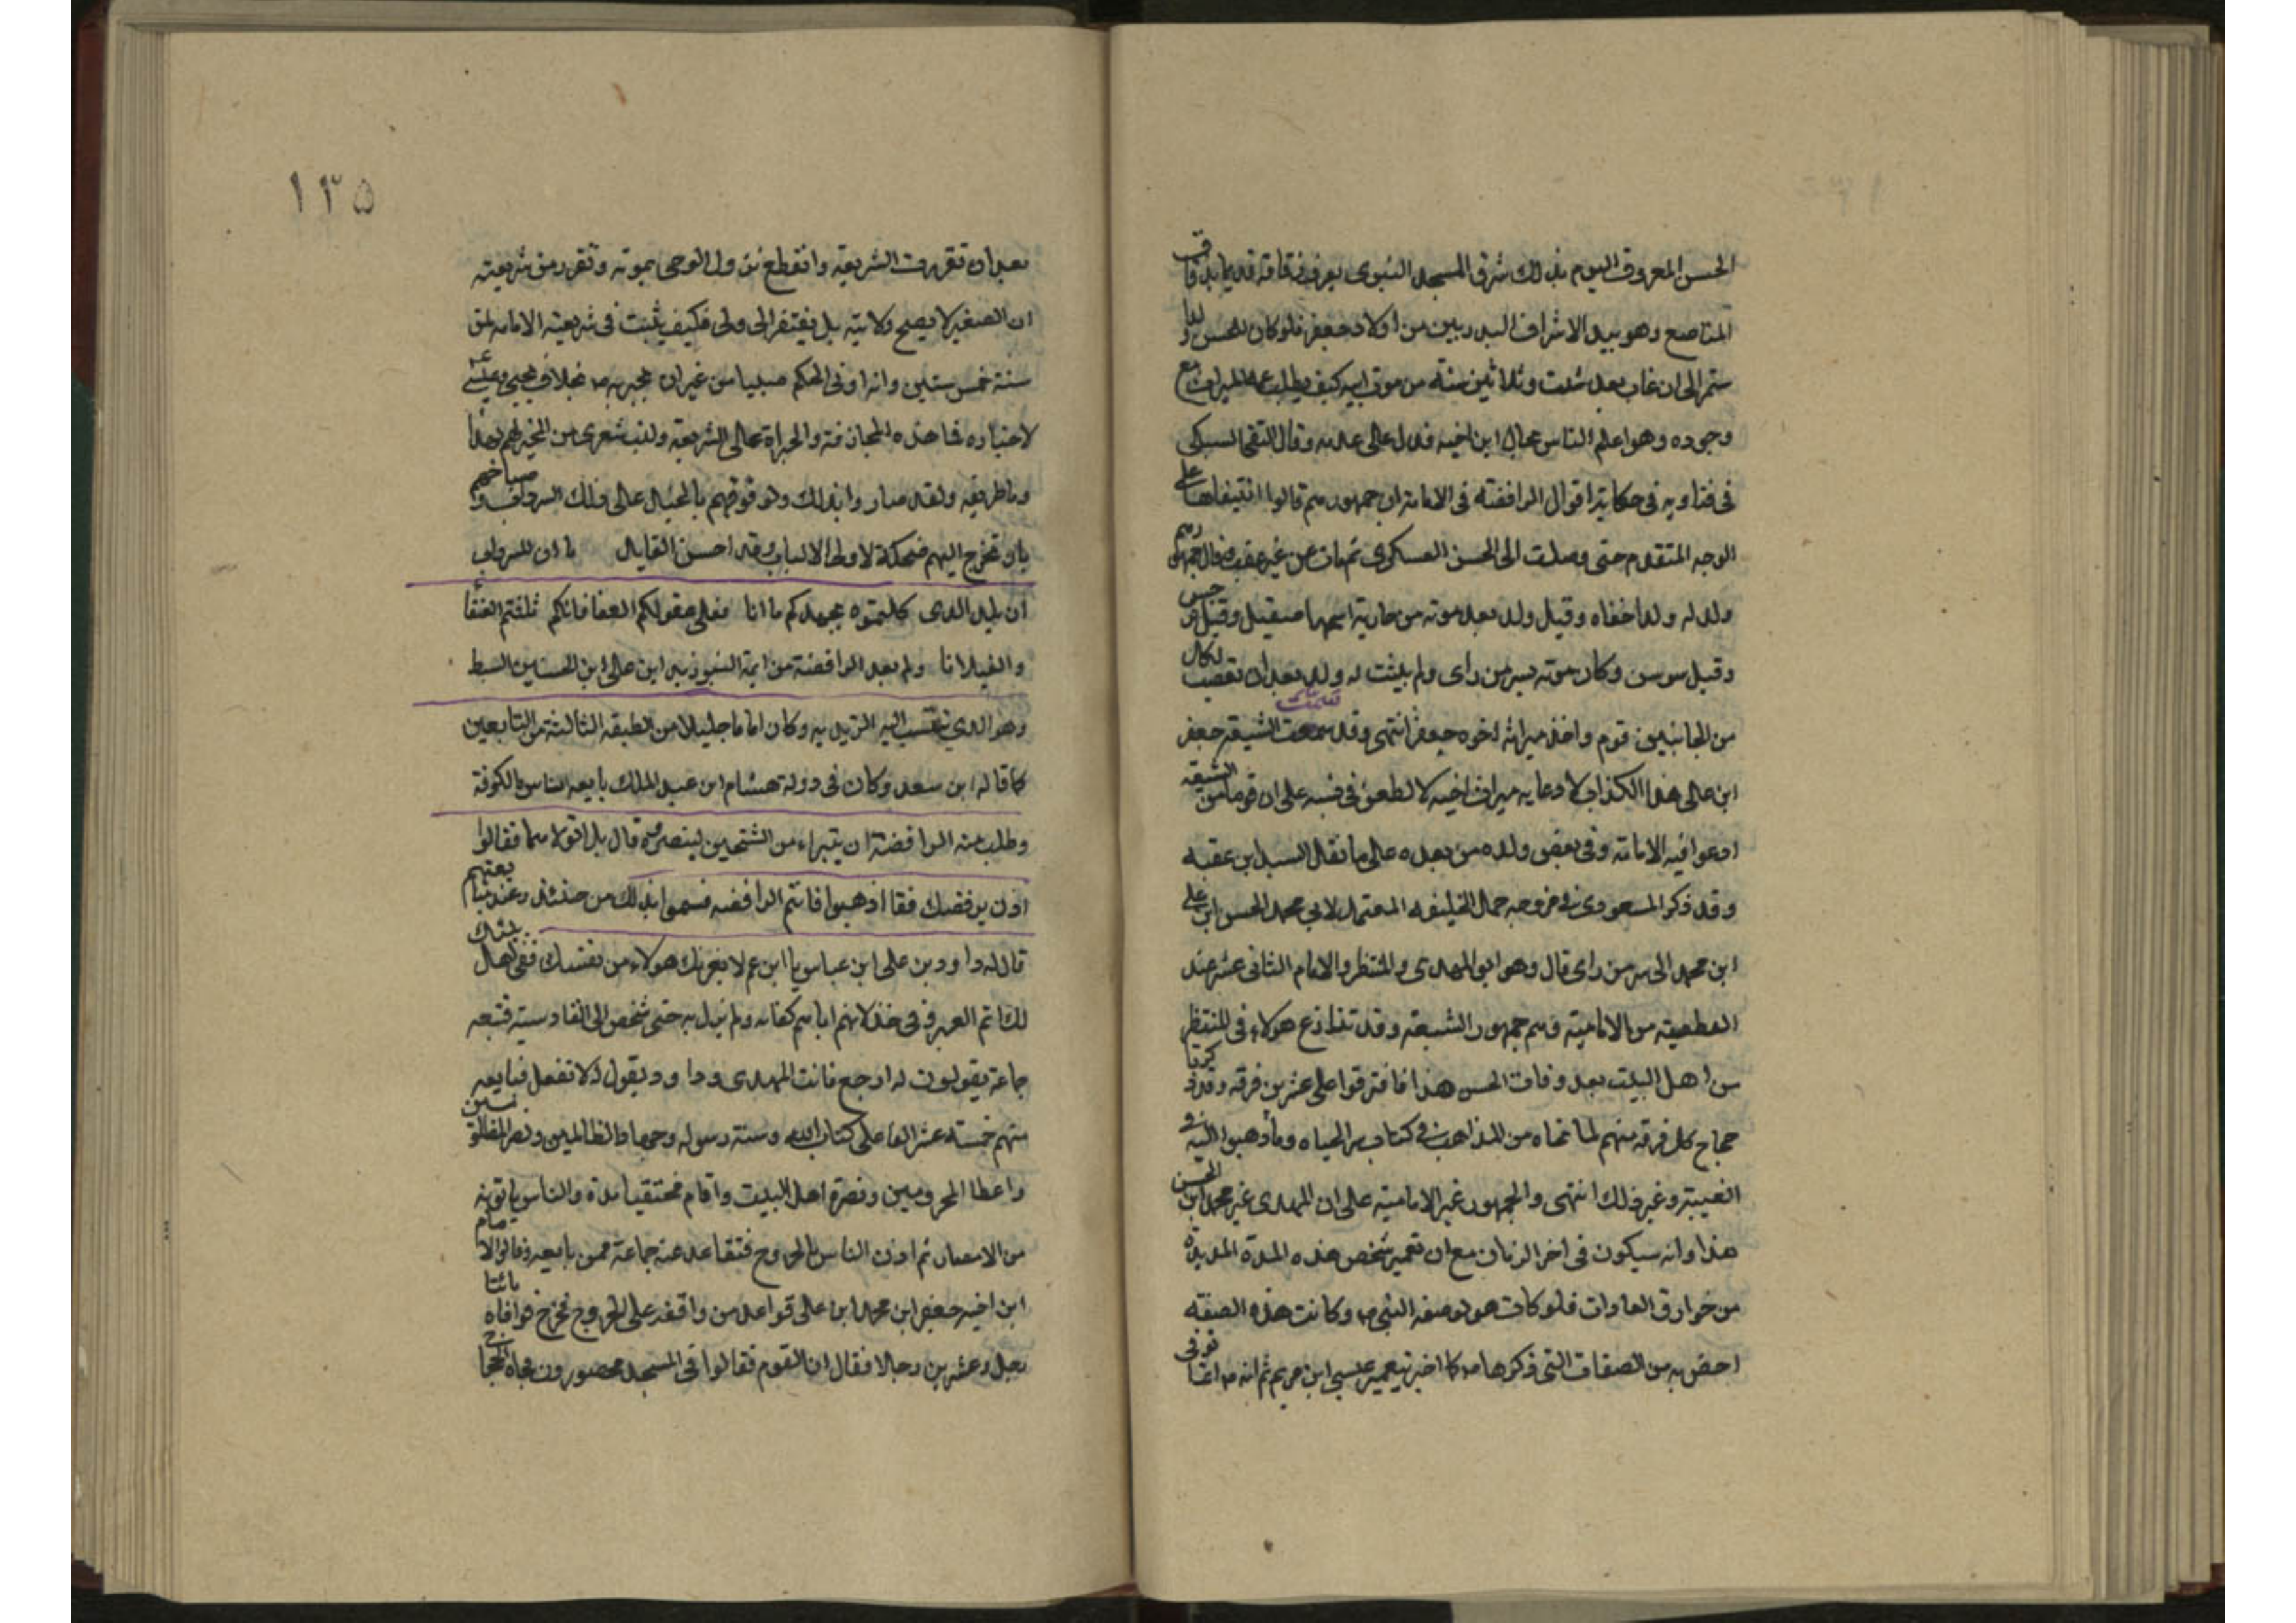 الحسن المعروف اليوم بذلك شرقى المسجد النبوى يعرف زقاقه قديما بدقاق
المناصع وهو بيد الاشراف البدريين من اولاد جعفر فلو كان للحسن ولدا
ستمر الى ان غاب بعد ثلث وثلاثين سنة من موت ابيه كيف يطلب عمه الميراث مع
وجوده وهو اعلم الناس بحال ابن اخيه فدل على عدمه وقال التقى السبكى
فى فتاويه فى حكاية اقوال الرافضة فى الامامة ان جمهورهم قالوا انتيفاها على
الوجه المتقدم حتى وصلت الى الحسن العسكرى ثم مات عن غير عقب وقال جمهورهم
ولد له ولد اخفاه وقيل ولد بعد موته من جارية اسمها صيقيل وقيل نرجس
وقيل سوسن وكان موته بسر من راى ولم يثبت له ولد بعد ان تعصب لكل
من الجانبين قوم واخذ ميراثه اخوه جعفر انتهى وقد سمت الشيعة جعفر
ابن على هذا الكذاب لادعايه ميراث اخيه لا لطعن فى نسبه على ان قوما من الشيعة
ادعوا فيه الامامة وفى بعض ولده من بعده على ما نقل السيد ابن عقبه
وقد ذكر المسعودى فى مروجه حمال الخليفه المعتمد لابي محمد الحسن ابن على
ابن محمد الى سر من راى قال وهو ابو المهدى والمنتظر والامام الثانى عشر عند
القطعية من الامامية وهم جمهور الشيعة وقد تنازع هولاء فى المنتظر
من اهل البيت بعد وفات الحسن هذا فافترقوا على عشرين فرقه وقد ذكرنا
حجاج كل فرقه منهم لما نحاه من المذاهب فى كتاب سر الحياه وما ذهبوا اليه فى
الغيبة وغير ذلك انتهى والجمهور غير الامامية على ان المهدى غير محمد ابن الحسن
هذا وانه سيكون فى اخر الزمان مع ان تعمير شخص هذه المدة المديدة
من خوارق العادات فلو كان هو لوصفه النبى ص وكانت هذه الصفه
احض به من الصفات التى ذكرها ص كما اخبر بتعمير عيسى ابن مريم ثم انه ص انما توفى
١٣٥
بعد ان تقررت الشريعه وانقطع نزول الوحى بموته وتقرر من شريعته
ان الصغير لا يصح ولايته بل يفتقر الى ولى فكيف يثبت فى شريعته الامامه لمن
سنة خمس سنين وانه اوتى الحكم صبيا من غير ان يخبر به ص بخلاف يحيى وعيسى
لاخباره فما هذه المجازفة والجراة على الشريعه وليت شعرى من المخبر لهم بهذا
وما طريقه ولقد صاروا بذلك ولو قوفهم بالخيال على ذلك السرداب وصياحهم
بان تخرج اليهم ضحكة لاولى الالباب وقد احسن القايل ما ان للسرداب
ان يلد الذى كلمتموه بجهلكم ما انا فعلى عقولكم العفا فانكم ثلثتم العنقا
والغيلانا ولم يعد الرافضة من ايمة السنيوزيد ابن على ابن الحسين السبط
وهو الذى تنتسب اليه الزيديه وكان اماما جليلا من الطبقه الثالثة من التابعين
كما قاله ابن سعد وكان فى دولة هشام ابن عبد الملك بايعه الناس بالكوفة
وطلب منه الرافضة ان يتبراء من الشيخين لينصروه قال بل اتولاهما فقالوا
اذن نرفضك فقا اذهبوا فانتم الرافضه فسموا بذلك من حنئذ وعند بيعتهم
قال له داود بن على ابن عباس يا ابن عم لا يغرنك هولاء من نفسك ففى اهل بيتك
لك اتم العبر وفى خذلانهم اياهم كفايه ولم يزل به حتى شخص الى القادسية فتبعه
جماعة يقولون له ارجع فانت المهدى وداود يقول لا تفعل فبايعه
منهم خمسة عشر الفا على كتاب الله وسنة رسوله وجهاد الظالمين ونصر المظلومين
واعطا المحرومين ونصرة اهل البيت واقام مختفيا مدة والناس ياتونه
من الامصار ثم اذن الناس بالخروج فتقاعد عنه جماعة ممن بايعه وقالوا الامام
ابن اخيه جعفر ابن محمد ابن على قواعد من واقفه على الخروج فخرج فوافاه مائتا
رجل وعشرين رجالا فقال ان القوم فقالوا فى المسجد محصورون فجاه الحجاج